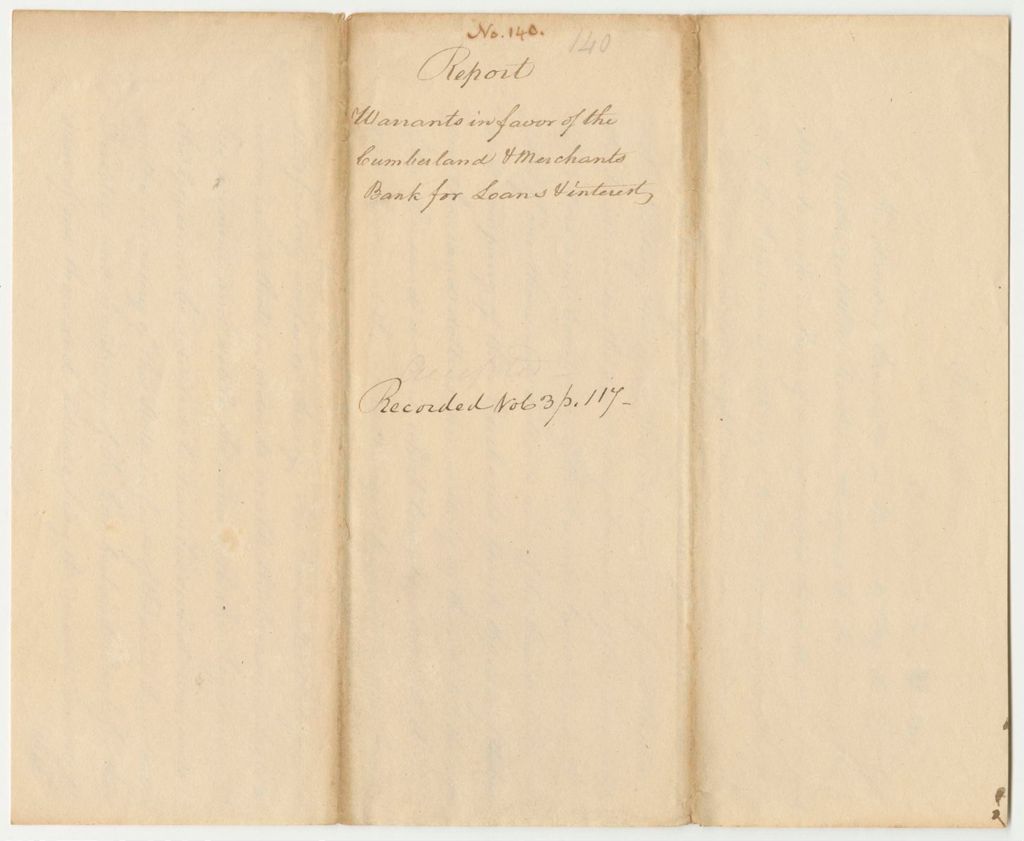 No. 140.
140
Report
Warrants in favor of the
Cumberland & Merchants
Bank for Loans & interest,
Accepted –
Recorded Vol 3 p. 117 –